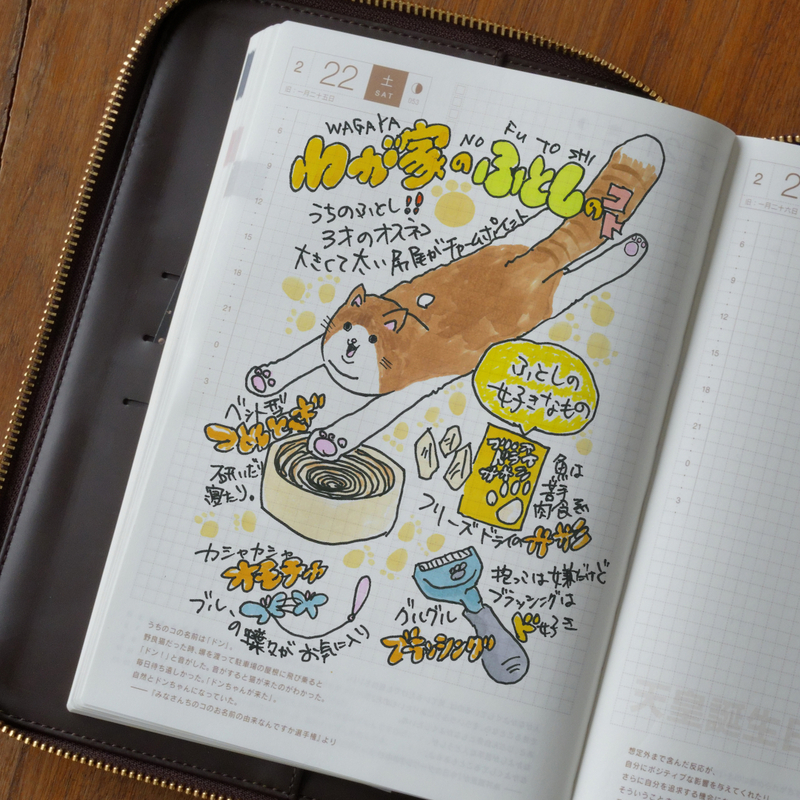 2 22 土 SAT
旧 一月二十五日
053
WAGAYA NO FU TO SHI
わが家のふとしのコト
うちのふとし!!
3才のオスネコ
大きくて太い尻尾がチャームポイント
ふとしの
好きなもの
ベッド型
つめとぎ
研いだり
寝たり。
フリーズ
ドライ
ササミ
魚は
苦手
肉食系
フリーズドライのササミ
カシャカシャ
オモチャ
ブルーの蝶々がお気に入り
抱っこは嫌だけど
ブラッシングは
ド好き
グルグル
ブラッシング
うちのコの名前は「ドン」。
野良猫だった時、塀を渡って駐車場の屋根に飛び乗ると
「ドン!」と音がした。音がすると猫が来たのがわかった。
毎日待ち遠しかった。「ドンちゃんが来た」。
自然とドンちゃんになっていた。
——『みなさんちのコのお名前の由来なんですか選手権』より
8
12
15
18
21
0
3
2 2
旧 一月二十六日
8
12
15
18
21
0
3
想定外まで含んだ反応が、
自分にポジティブな影響を与えてくれたり
さらに自分を追求する機会に
そういうことを